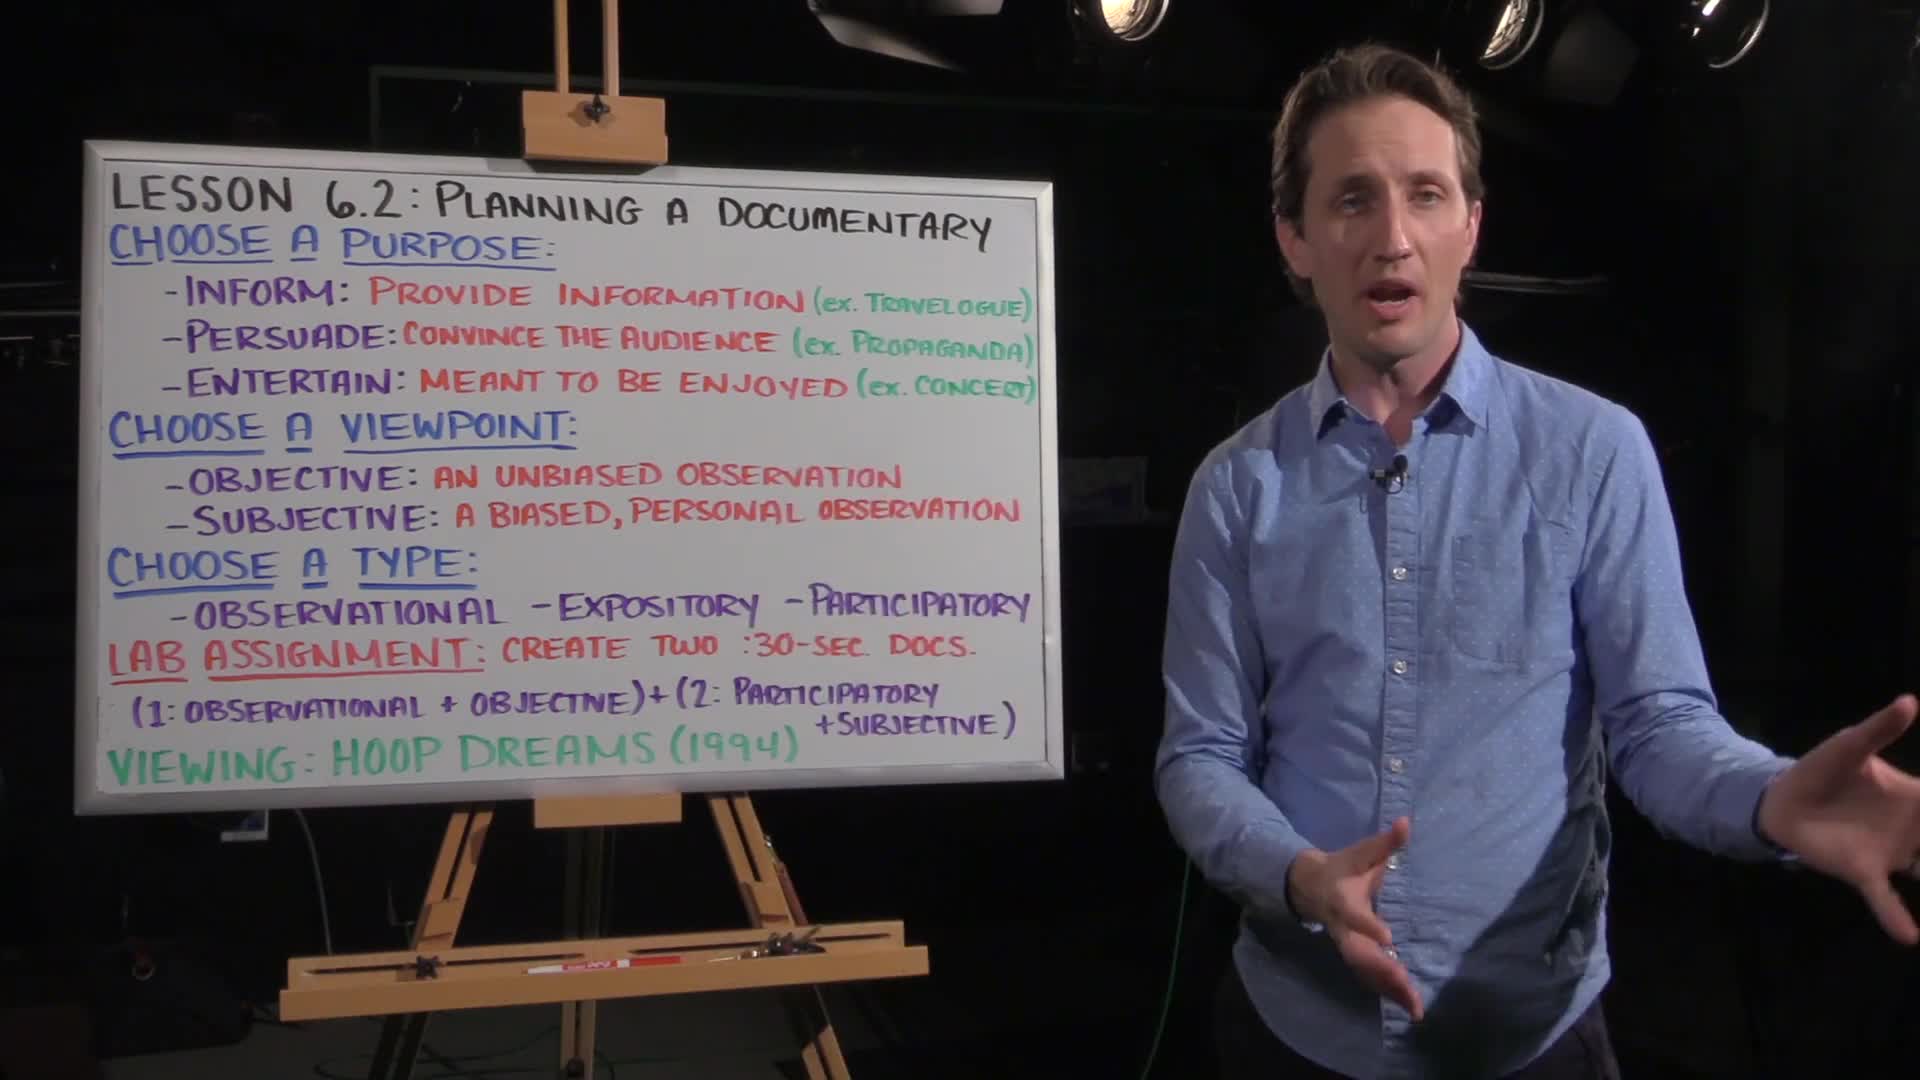 LESSON 6.2: PLANNING A DOCUMENTARY
CHOOSE A PURPOSE:
-INFORM: PROVIDE INFORMATION (ex. TRAVELOGUE)
-PERSUADE: CONVINCE THE AUDIENCE (ex. PROPAGANDA)
-ENTERTAIN: MEANT TO BE ENJOYED (ex. CONCERT)
CHOOSE A VIEWPOINT:
-OBJECTIVE: AN UNBIASED OBSERVATION
-SUBJECTIVE: A BIASED, PERSONAL OBSERVATION
CHOOSE A TYPE:
-OBSERVATIONAL -EXPOSITORY -PARTICIPATORY
LAB ASSIGNMENT: CREATE TWO :30-SEC. DOCS.
(1: OBSERVATIONAL + OBJECTIVE) + (2: PARTICIPATORY
+SUBJECTIVE)
VIEWING: HOOP DREAMS (1994)